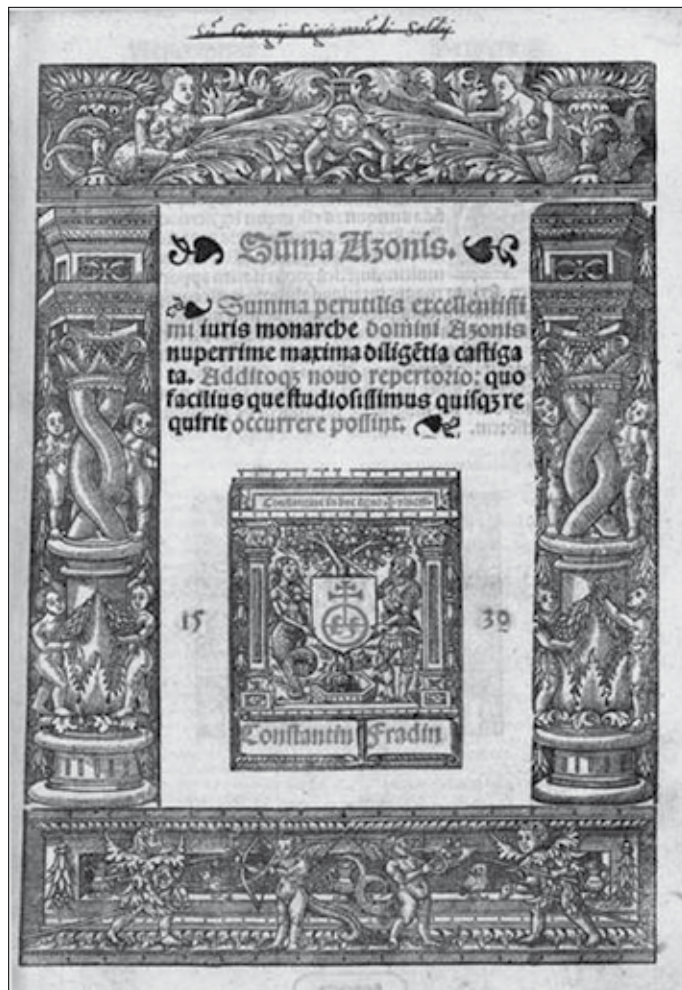 Sūma Azonis.
Summa perutilis excellentissi
mi iuris monarche domini Azonis
nuperrime maxima diligētia castiga
ta. Additoqꝫ nouo repertorio: quo
facilius que studiosissimus quisqꝫ re
quirit occurrere possint.
15 30
Constantin Fradin